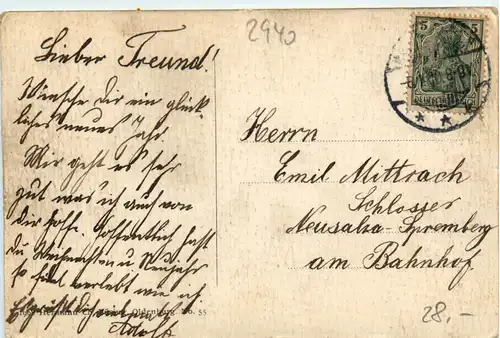 2940
Lieber Freund!
Wünsche dir ein glück-
liches neues Jahr.
Mir geht es sehr
gut was ich auch von
dir hoffe. Hoffentlich hast
du Weihnachten u Neujahr
so fidel verlebt wie ich.
Es grüßt dich vielmals
Adolf
Herrn
Emil Mittrach
Schlosser
Neusalza-Spremberg
am Bahnhof
28,-
5 5
Oldenburg. No. 55